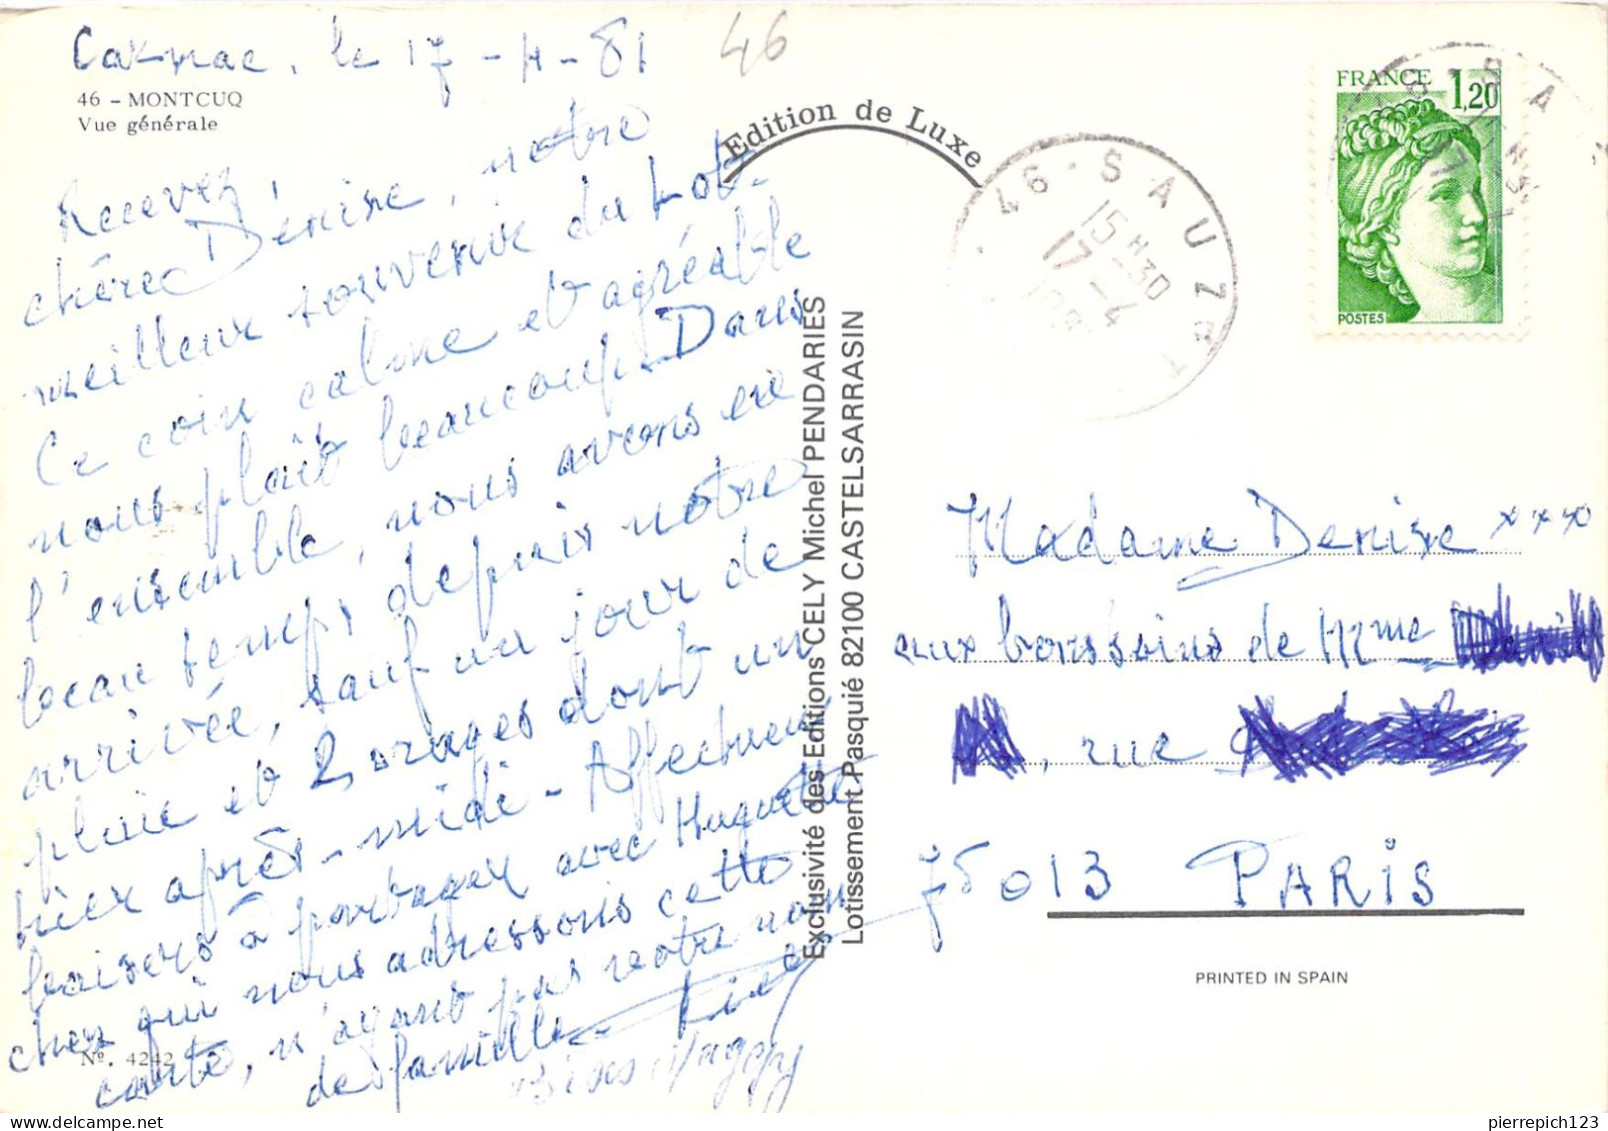 Carnac, le 17-4-81
46
46 - MONTCUQ
Vue générale
Recevez,
chère Denise, notre
meilleur souvenir du Lot.
Ce coin calme et agréable
nous plaît beaucoup. Dans
l'ensemble, nous avons eu
beau temps depuis notre
arrivée, sauf un jour de
pluie et 2 orages dont un
hier après-midi - Affectueux
baisers à partager avec Huguette
chez qui nous adressons cette
carte, n'ayant pas votre nom
de famille -
Bises Maggy
Nº. 4242
Edition de Luxe
Exclusivité des Editions CELY Michel PENDARIES
Lotissement Pasquié 82100 CASTELSARRASIN
FRANCE 1,20
POSTES
46 - SAUZET
15 H 30
17 - 4
Madame Denise xxx
aux bons soins de Mme
, rue
75013 PARIS
PRINTED IN SPAIN
pierrepich123